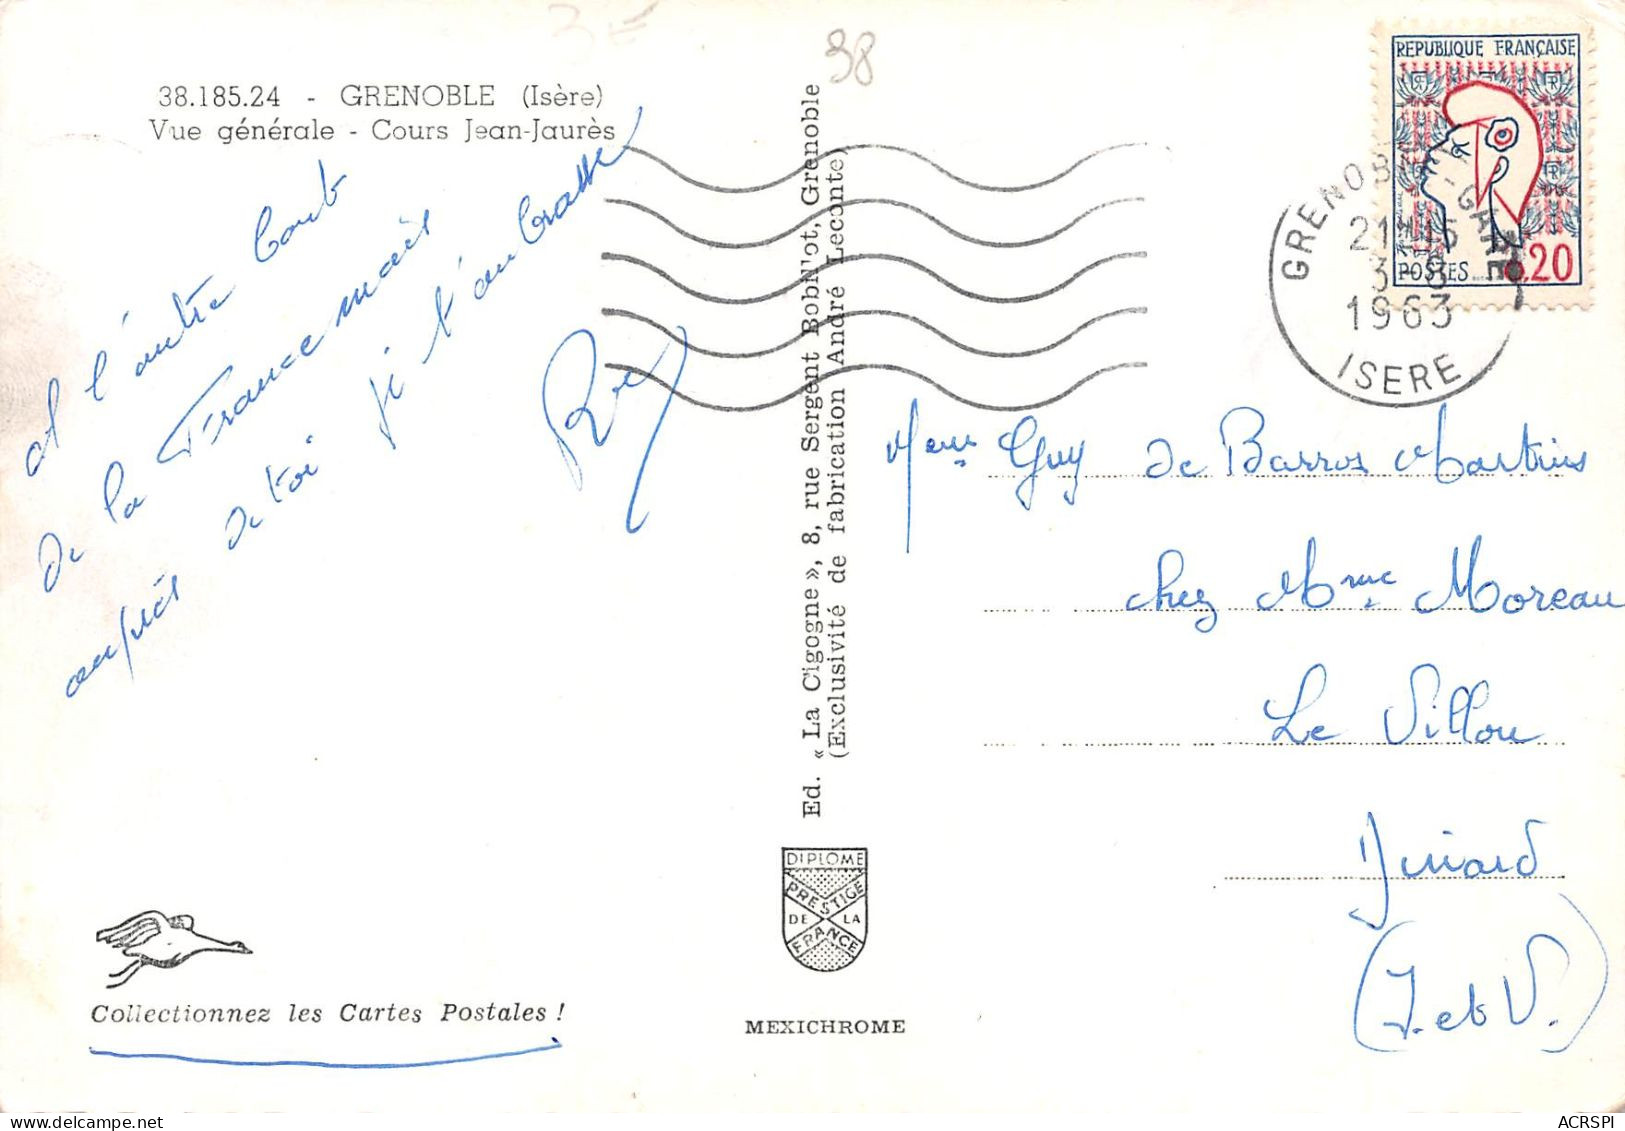 3 =
98
38.185.24 - GRENOBLE (Isère)
Vue générale - Cours Jean-Jaurès
at l'autre bout
de la France mais
auprès de toi je t'embrasse
Ed. « La Cigogne », 8, rue Sergent Bobillot, Grenoble
(Exclusivité de fabrication André Leconte)
REPUBLIQUE FRANÇAISE
POSTES
0.20
GRENOBLE - GARE
21H15
3-8
1963
ISERE
Mme Guy de Barros Martins
chez Mme Moreau
Le Villou
Dinard
(I. et V.)
DIPLOME
PRESTIGE
DE LA
FRANCE
Collectionnez les Cartes Postales !
MEXICHROME
ACRSPI